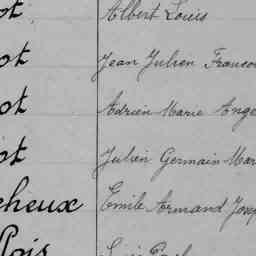 ot Albert Louis
ot Jean Julien Francoi
ot Adrien Marie Ange
ot Julien Germain Mar
cheux Emile Armand Josep
llois